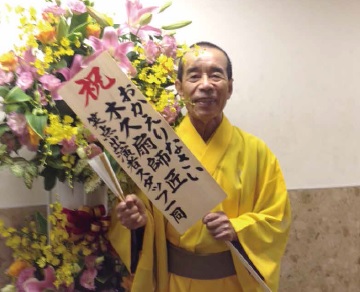 祝
おかえりなさい
木久扇師匠
笑点出演者スタッフ一同